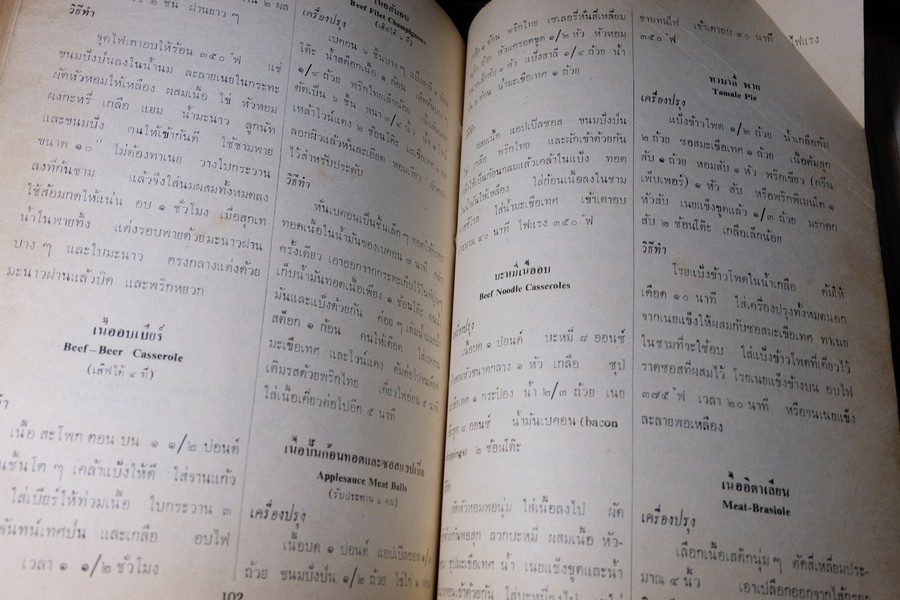 วิธีทำ
จุดไฟเตาอบให้ร้อน ๓๕๐ °ฟ แช่
ขนมปังป่นลงในน้ำนม ละลายเนยในกระทะ
ผัดหัวหอมให้เหลือง ผสมเนื้อ ไข่ หัวหอม
ผงกะหรี่ เกลือ แยม น้ำมะนาว ลูกนัท
และขนมปัง คนให้เข้ากันดี ใช้ชามพาย
ขนาด ๑๐" ไม่ต้องทาเนย วางใบกระวาน
ลงที่ก้นชาม แล้วจึงใส่นมผสมทั้งหมดลง
ใช้ส้อมกดให้แน่น อบ ๑ ชั่วโมง เมื่อสุกเท
น้ำในพายทิ้ง แต่งรอบพายด้วยมะนาวผ่าน
บาง ๆ และใบมะนาว ตรงกลางแต่งด้วย
มะนาวผ่านแล้วบิด และพริกหยวก
เนื้ออบเบียร์
Beef-Beer Casserole
(เสิฟได้ ๔ ที่)
เนื้อ สะโพก ตอน บน ๑ ๑/๒ ปอนด์
ชิ้นโต ๆ เคล้าแป้งให้ดี ใส่จานแก้ว
ใส่เบียร์ให้ท่วมเนื้อ ใบกระวาน ๓
จันทน์เทศป่น และเกลือ อบไฟ
เวลา ๑ ๑/๒ ชั่วโมง
102
เนื้อสันอบ
Beef Filet Champignons
เครื่องปรุง
เบคอน ๖ ชิ้นบาง ๆ
โต๊ะ น้ำสต๊อกเนื้อ ๑ ก้อน
๑/๔ ถ้วย พริกไทยเล็กน้อย
ตัดเป็น ๖ ชิ้น หนา ๓/๔ นิ้ว
เหล้าไวน์แดง ๒ ช้อนโต๊ะ
ลอกผิวแล้วหั่นละเอียด
ไว้สำหรับประดับ
วิธีทำ
หั่นเบคอนเป็นชิ้นเล็ก ๆ
ทอดเนื้อในน้ำมันของเบคอน ๘ นาที
ครั้งเดียว เอาออกจากกระทะเก็บไว้
เก็บน้ำมันทอดเนื้อเพียง ๑ ช้อนโต๊ะ
มันและแป้งด้วยกัน ค่อย ๆ เติมน้ำ
สต๊อก ๑ ก้อน คนให้เดือด ใส่
มะเขือเทศ และไวน์แดง ต้มต่อไป
เติมรสด้วยพริกไทย เคี่ยวไฟอ่อน ๕ นาที
ใส่เนื้อเคี่ยวต่อไปอีก ๕ นาที
เนื้อปั้นก้อนทอดและซอสแอปเปิล
Applesauce Meat Balls
(รับประทาน ๖ คน)
เครื่องปรุง
เนื้อบด ๑ ปอนด์ แอปเปิลซอส ๑/๒
ถ้วย ขนมปังป่น ๑/๒ ถ้วย ไข่ไก่ ๑
๑ ก้อน พริกไทย เซเลอรี่หั่นสี่เหลี่ยม
หัวแครอตขูด ๑/๒ หัว หัวหอม
๑ หัว แป้งสาลี ๑/๔ ถ้วย น้ำ
น้ำมะเขือเทศ ๑ ถ้วย
ผสมเนื้อ แอปเปิลซอส ขนมปังป่น
เกลือ พริกไทย และผักเข้าด้วยกัน
เป็นก้อนกลมแล้วเคล้าในแป้ง ทอด
ให้เหลือง ใส่ก้อนเนื้อลงในชาม
ใส่น้ำมะเขือเทศ เข้าเตาอบ
๔๐ นาที ไฟแรง ๓๕๐ °ฟ
บะหมี่เนื้ออบ
Beef Noodle Casseroles
เครื่องปรุง
เนื้อบด ๑ ปอนด์ บะหมี่ ๘ ออนซ์
ขนาดกลาง ๑ หัว เกลือ ซุป
มะเขือเทศ ๑ กระป๋อง น้ำ ๒/๓ ถ้วย เนย
ขูด ๘ ออนซ์ น้ำมันเบคอน (bacon
drippings) ๒ ช้อนโต๊ะ
ผัดหัวหอมพอนุ่ม ใส่เนื้อลงไป ผัด
ลวกบะหมี่ ผสมเนื้อ หัว-
ซุปมะเขือเทศ น้ำ เนยแข็งขูดและน้ำ
ชามทนไฟ เข้าเตาอบ ๔๐ นาที ไฟแรง
๓๕๐ °ฟ
ทามาลี พาย
Tamale Pie
เครื่องปรุง
แป้งข้าวโพด ๑/๒ ถ้วย น้ำเกลือต้ม
๒ ถ้วย ซอสมะเขือเทศ ๑ ถ้วย เนื้อต้มสุก
สับ ๑ ถ้วย หอมสับ ๑ หัว พริกเขียว (กรีน
เพ็บเพอร์) ๑ หัว สับ หรือพริกพิเมนโต ๑
หัวสับ เนยแข็งขูดแล้ว ๑/๓ ถ้วย มะกอก
สับ ๒ ช้อนโต๊ะ เกลือเล็กน้อย
วิธีทำ
โรยแป้งข้าวโพดในน้ำเกลือ ต้มให้
เดือด ๑๐ นาที ใส่เครื่องปรุงทั้งหมดนอก
จากเนยแข็งให้ผสมกับซอสมะเขือเทศ ทาเนย
ในชามที่จะใช้อบ ใส่แป้งข้าวโพดที่เคี่ยวไว้
ราดซอสที่ผสมไว้ โรยเนยแข็งข้างบน อบไฟ
๓๗๕ °ฟ เวลา ๒๐ นาที หรือจนเนยแข็ง
ละลายพอเหลือง
เนื้ออิตาเลียน
Meat-Brasiole
เครื่องปรุง
เลือกเนื้อเสต๊กนุ่ม ๆ ตัดสี่เหลี่ยมประ-
มาณ ๔ นิ้ว เอาเปลือกออกจากไส้กรอก